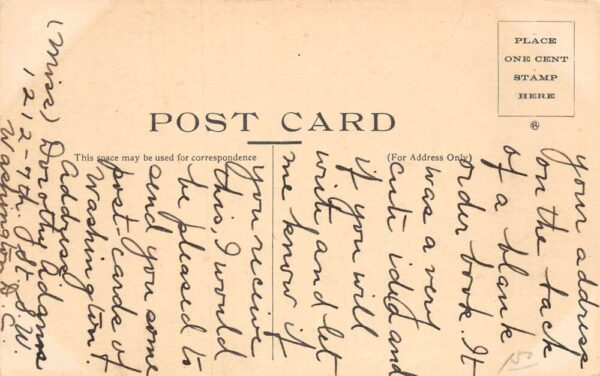 PLACE
ONE CENT
STAMP
HERE
POST CARD
This space may be used for correspondence
(For Address Only)
your address
on the back
of a blank
order book. It
was a very
cute idea and
if you will
write and let
me know if
you receive
this, I would
be pleased to
send you some
post-cards of
Washington.
Address
(Miss) Dorothy Adams
1212-7th St. S.W.
Washington D.C.
150